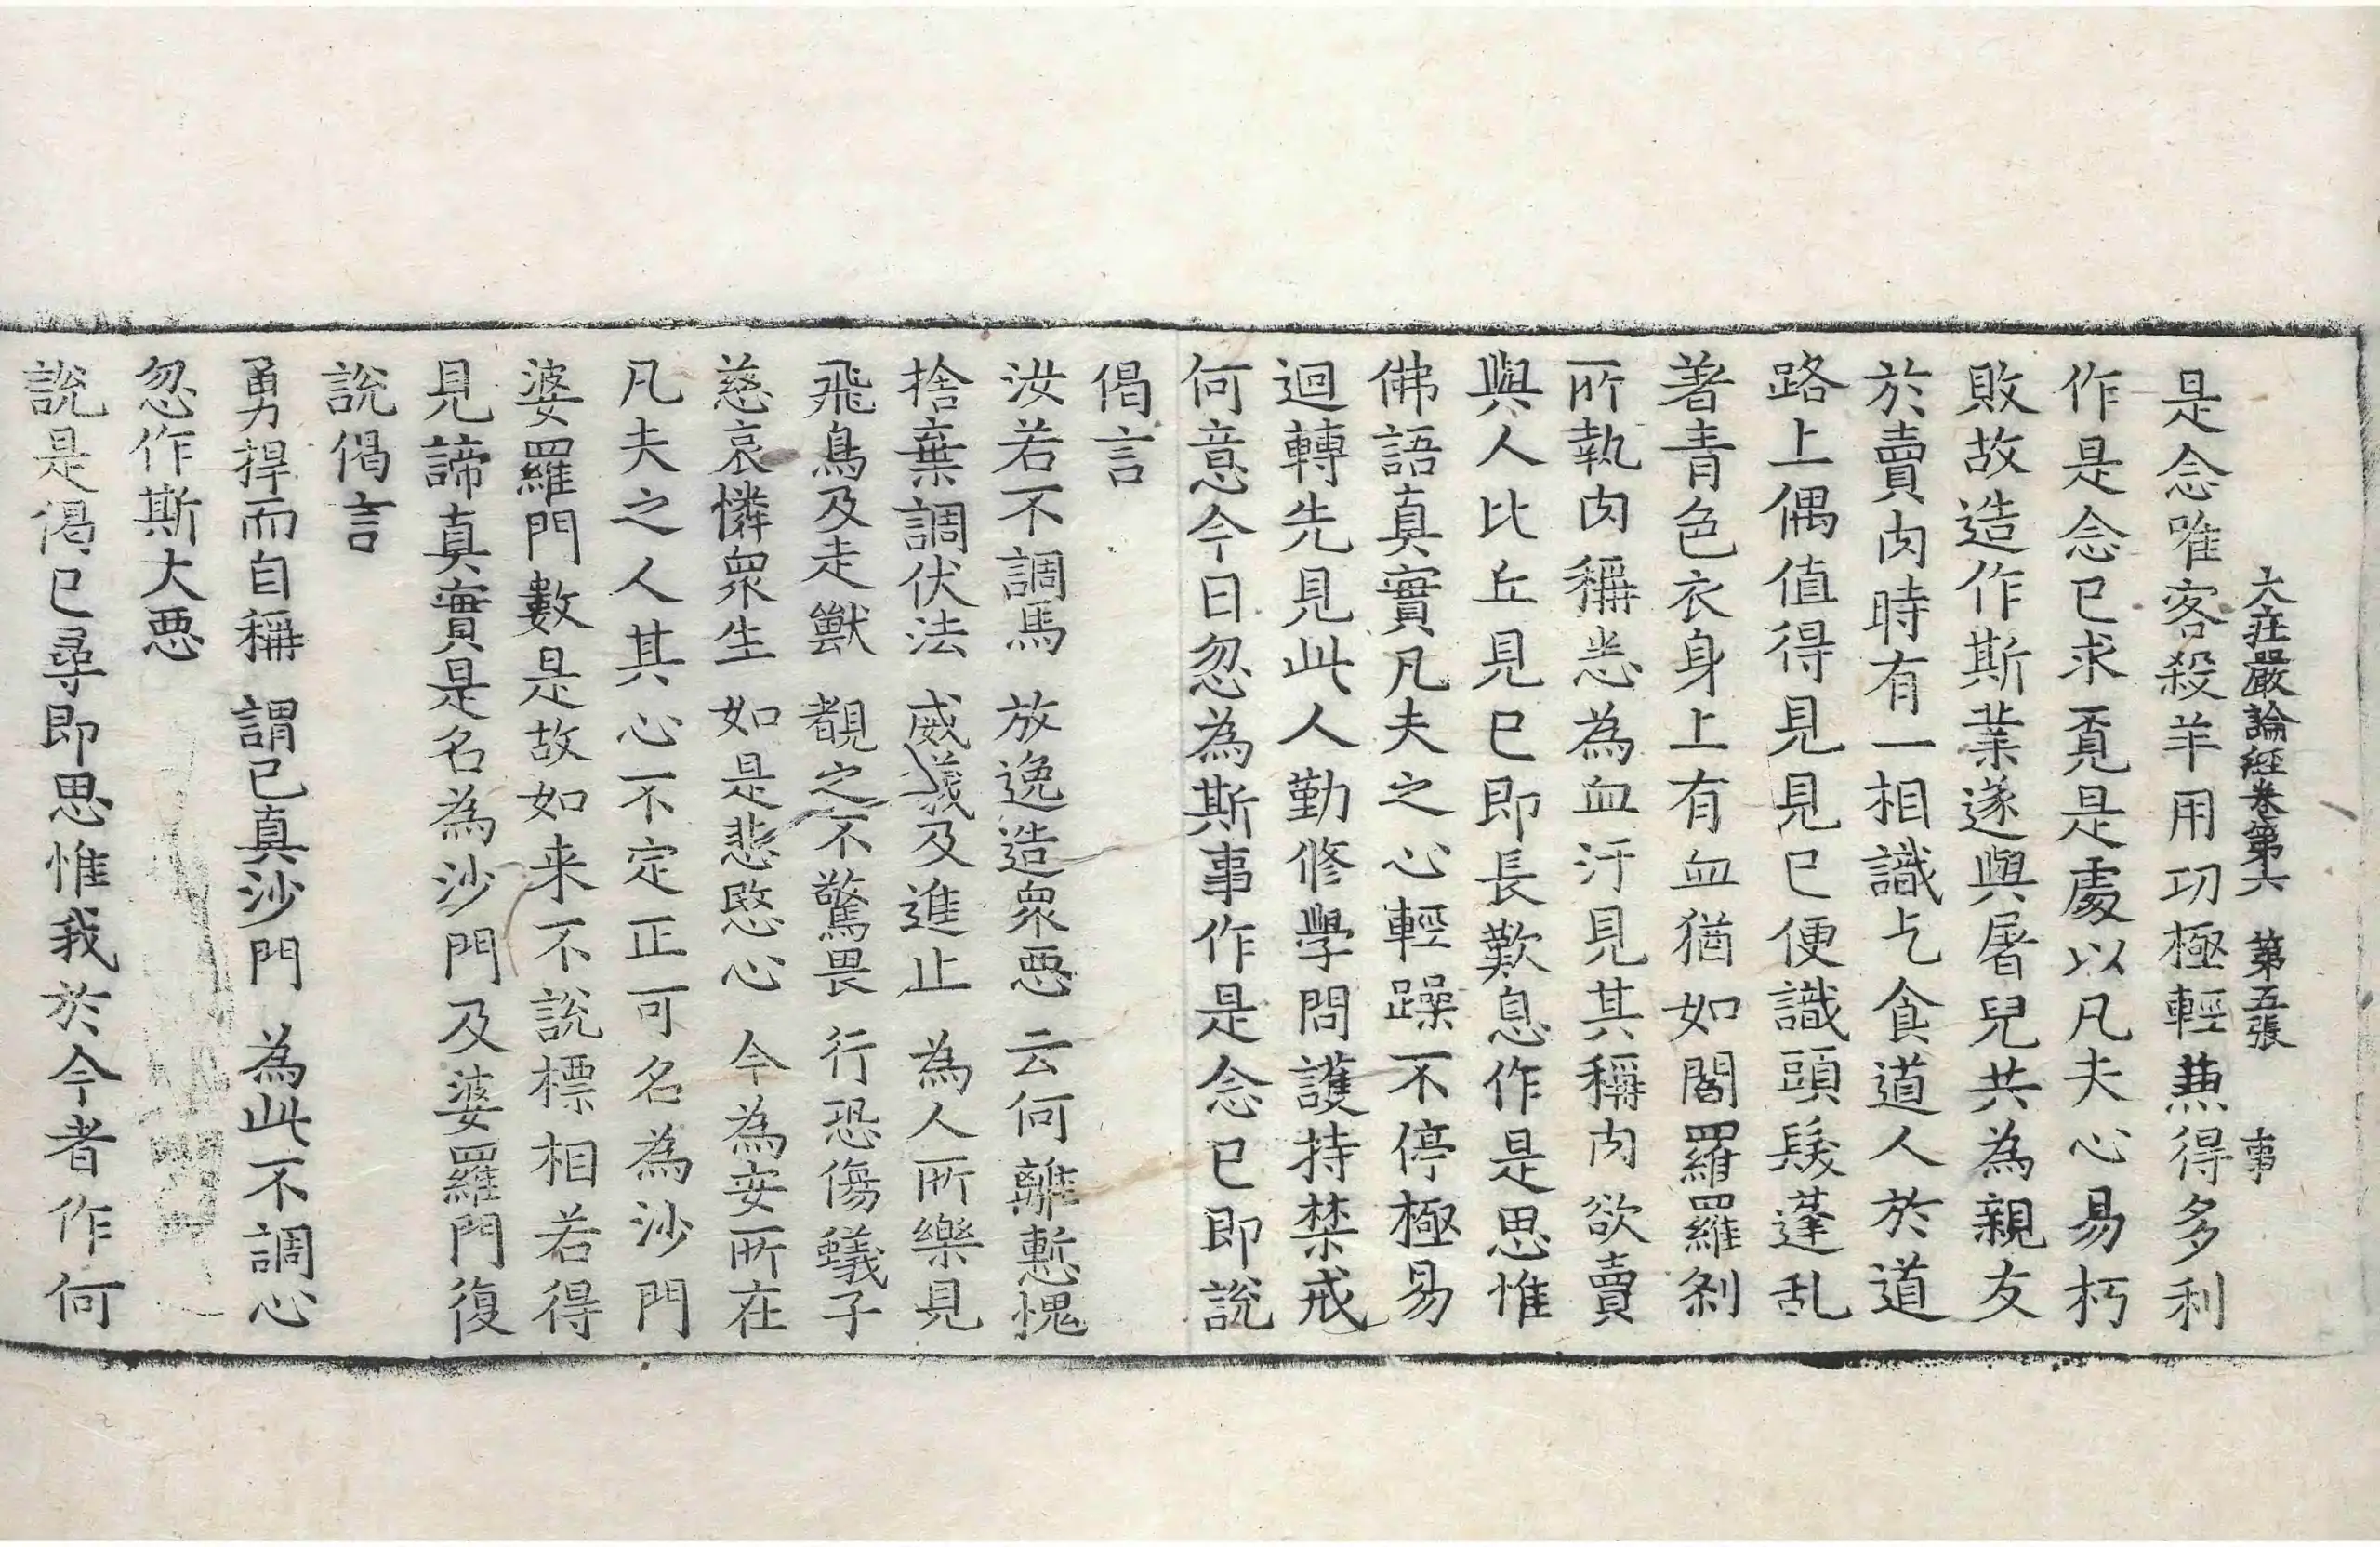 大莊嚴論經卷第六　第五張　事
是念唯客殺羊用功極輕兼得多利
作是念已求覓是處以凡夫心易朽
敗故造作斯業遂與屠兒共為親友
於賣肉時有一相識乞食道人於道
路上偶值得見見已便識頭髮蓬乱
著青色衣身上有血猶如閻羅羅剎
所執肉稱悉為血汙見其稱肉欲賣
與人比丘見已即長歎息作是思惟
佛語真實凡夫之心輕躁不停極易
迴轉先見此人勤修學問護持禁戒
何意今日忽為斯事作是念已即說
偈言
汝若不調馬　放逸造眾惡　云何離慙愧
捨棄調伏法　威儀及進止　為人所樂見
飛鳥及走獸　覩之不驚畏　行恐傷蟻子
慈哀憐眾生　如是悲愍心　今為安所在
凡夫之人其心不定正可名為沙門
婆羅門數是故如来不說標相若得
見諦真實是名為沙門及婆羅門復
說偈言
勇捍而自稱　謂已真沙門　為此不調心
忽作斯大惡
說是偈已尋即思惟我於今者作何